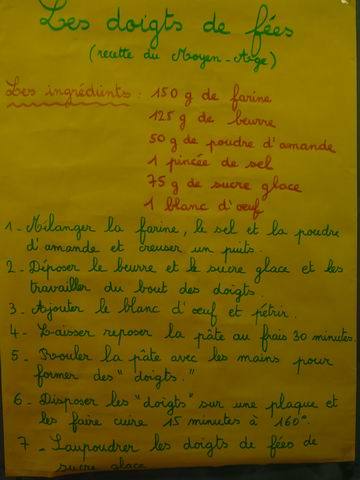 Les doigts de fées
(recette du Moyen-Age)
Les ingrédients : 150 g de farine
125 g de beurre
50 g de poudre d'amande
1 pincée de sel
75 g de sucre glace
1 blanc d'œuf
1 - Mélanger la farine, le sel et la poudre
d'amande et creuser un puits.
2 - Déposer le beurre et le sucre glace et les
travailler du bout des doigts.
3 - Ajouter le blanc d'œuf et pétrir.
4 - Laisser reposer la pâte au frais 30 minutes.
5 - Rouler la pâte avec les mains pour
former des "doigts."
6 - Disposer les "doigts" sur une plaque et
les faire cuire 15 minutes à 160°.
7 - Saupoudrer les doigts de fées de
sucre glace